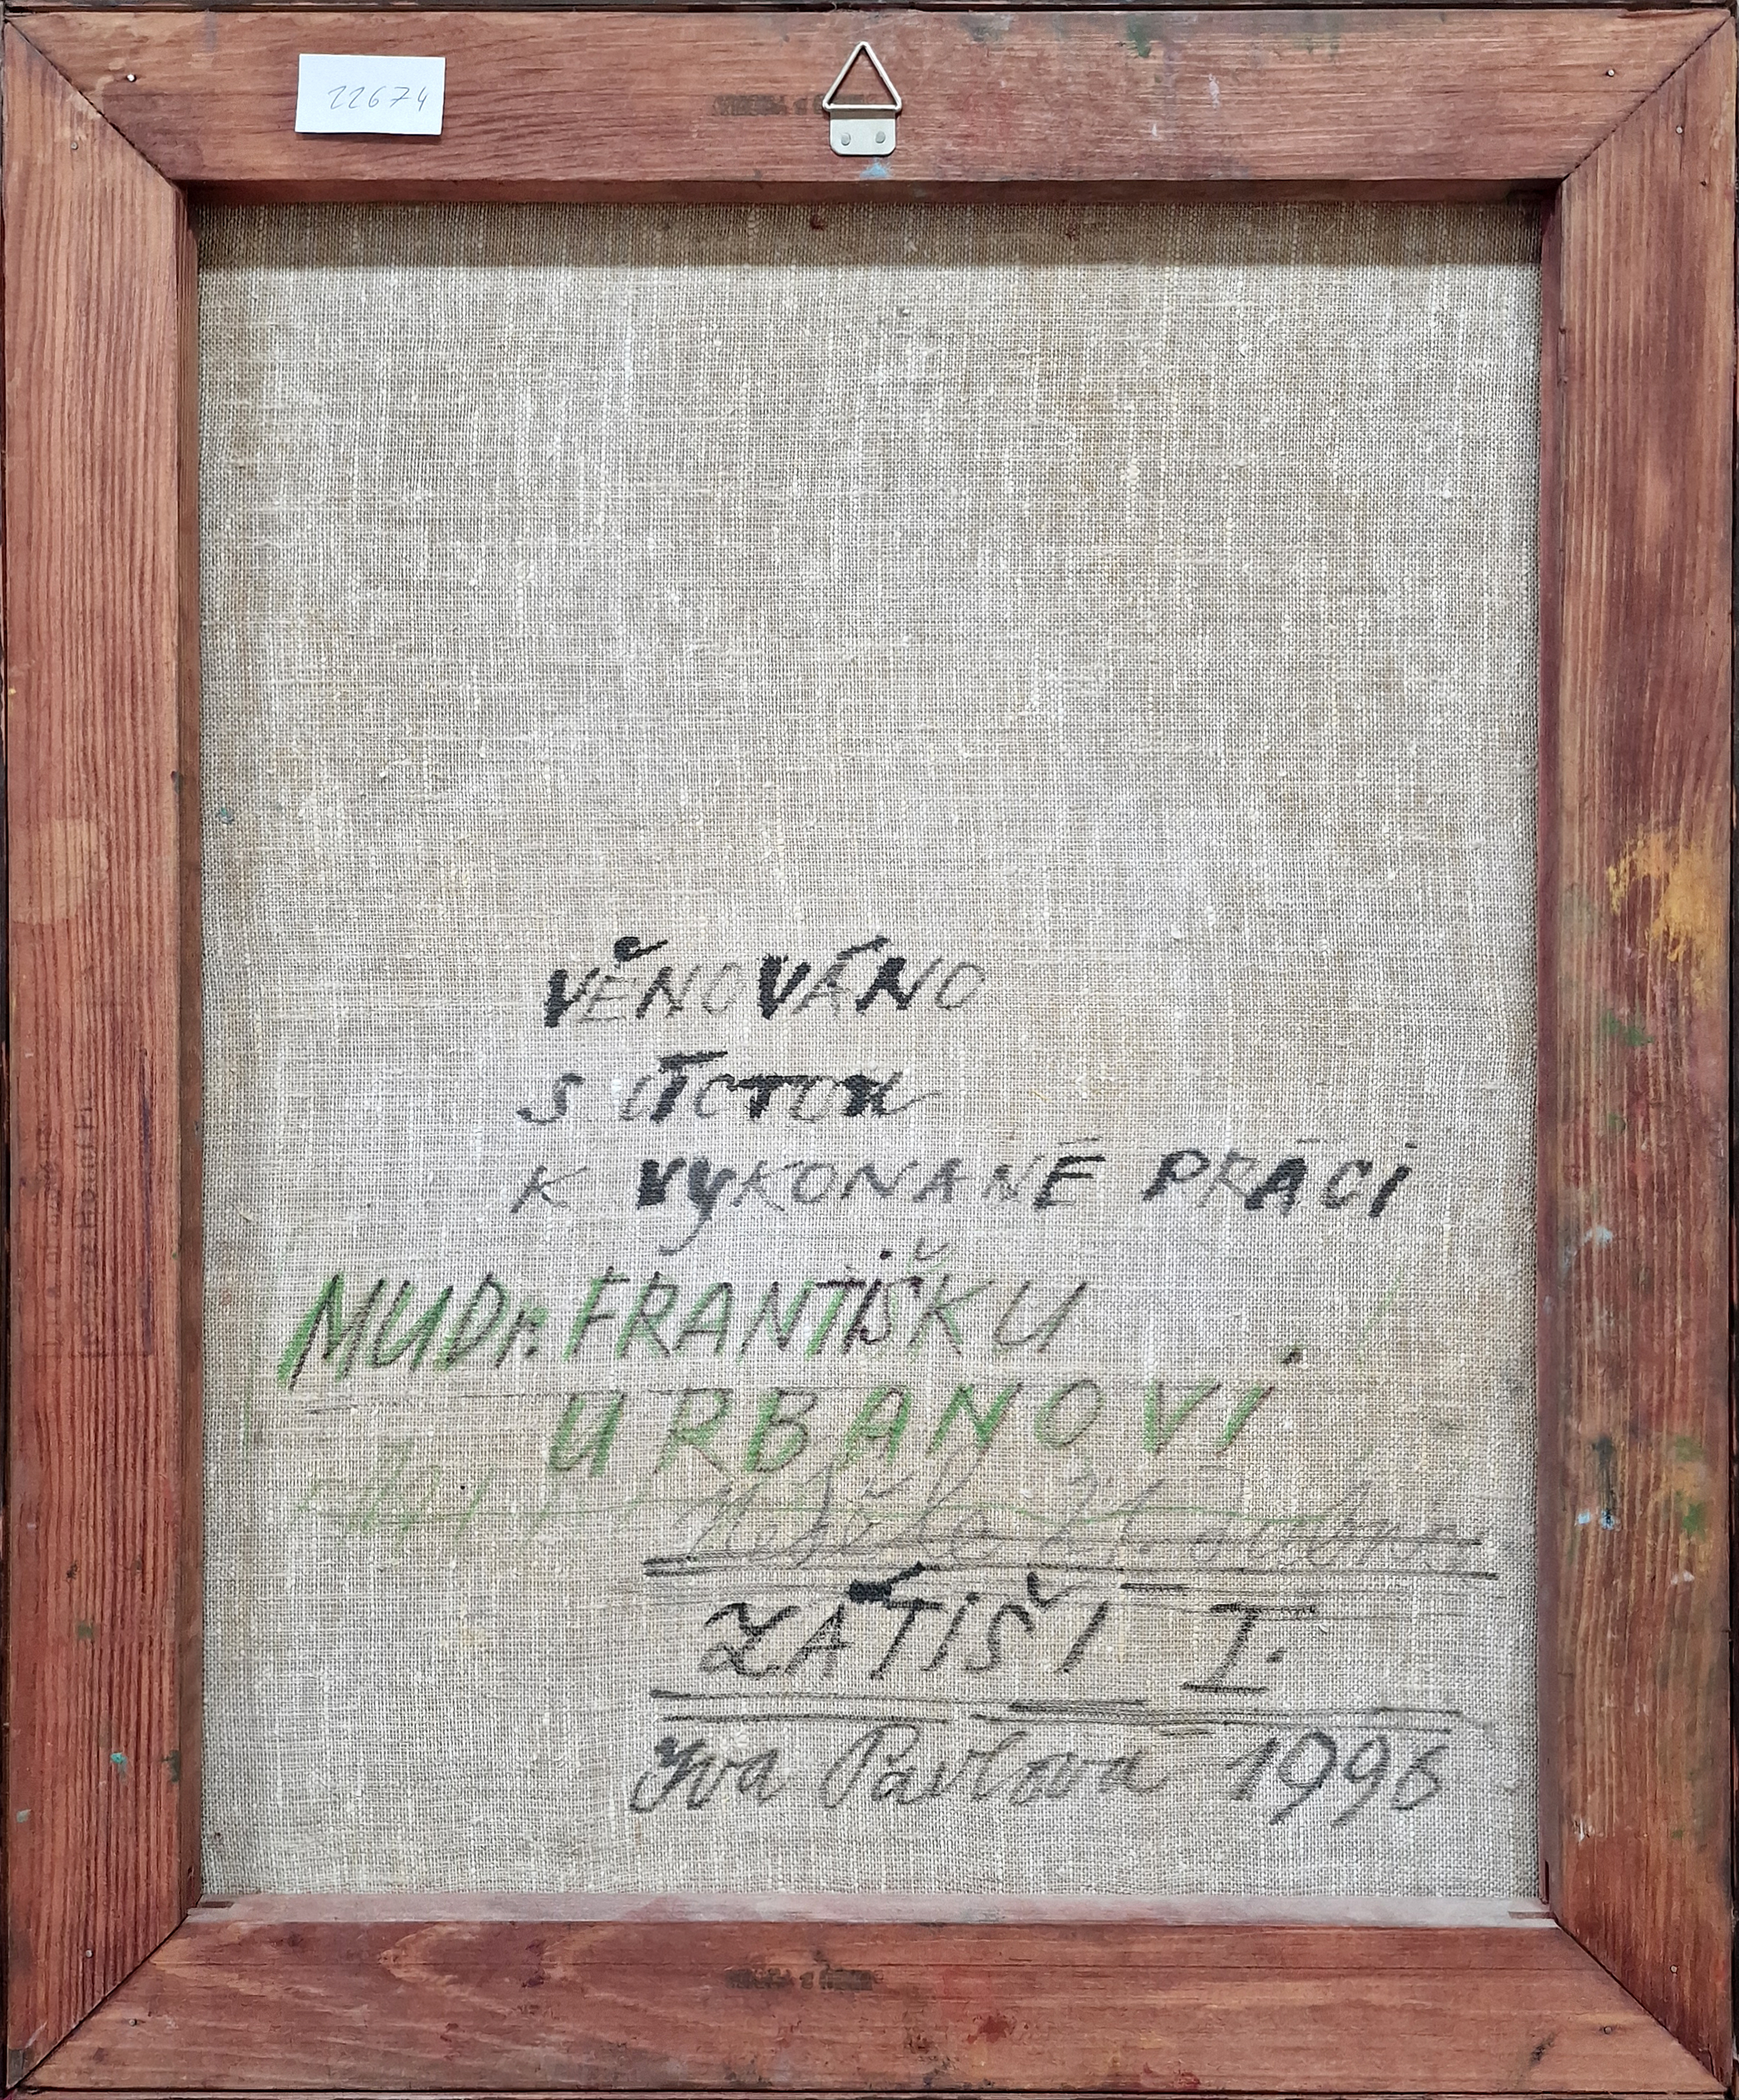 22674
VĚNOVÁNO
S ÚCTOU
K VYKONANÉ PRÁCI
MUDr. FRANTIŠKU
URBANOVI
ZÁTIŠÍ I.
Iva Pavlová 1996